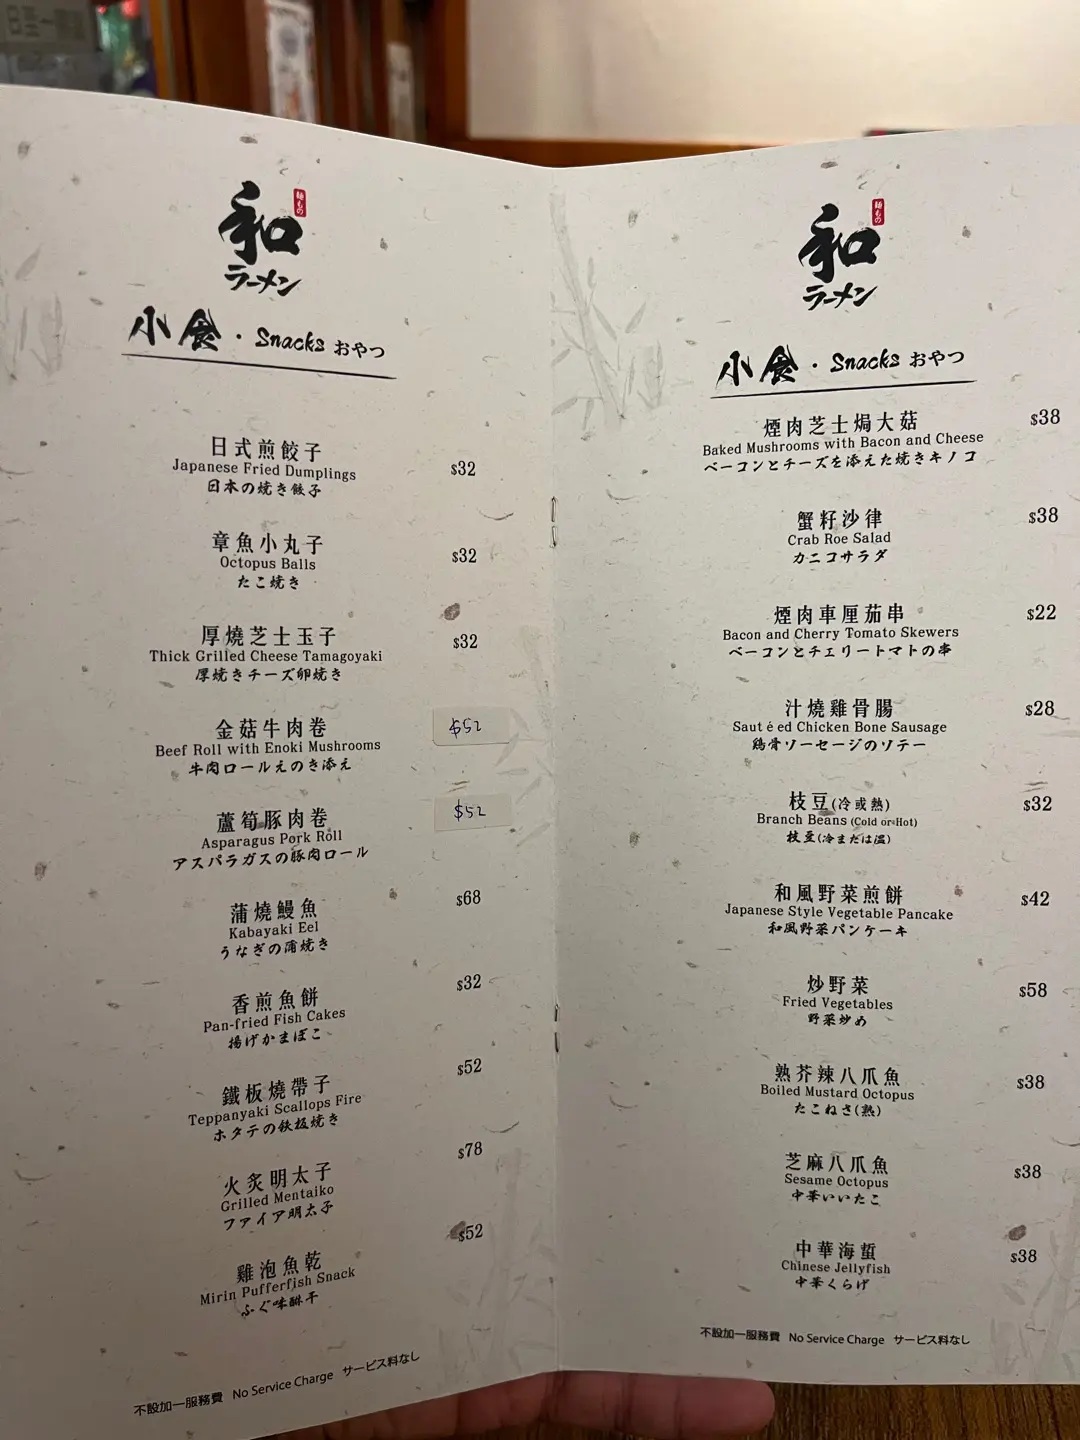 和
麺もの
ラーメン
小食・Snacks おやつ
日式煎餃子
Japanese Fried Dumplings
日本の焼き餃子
$32
章魚小丸子
Octopus Balls
たこ焼き
$32
厚燒芝士玉子
Thick Grilled Cheese Tamagoyaki
厚焼きチーズ卵焼き
$32
金菇牛肉卷
Beef Roll with Enoki Mushrooms
牛肉ロールえのき添え
$52
蘆筍豚肉卷
Asparagus Pork Roll
アスパラガスの豚肉ロール
$52
蒲燒鰻魚
Kabayaki Eel
うなぎの蒲焼き
$68
香煎魚餅
Pan-fried Fish Cakes
揚げかまぼこ
$32
鐵板燒帶子
Teppanyaki Scallops Fire
ホタテの鉄板焼き
$52
火炙明太子
Grilled Mentaiko
ファイア明太子
$78
雞泡魚乾
Mirin Pufferfish Snack
ふぐ味醂干
$52
不設加一服務費 No Service Charge サービス料なし
和
麺もの
ラーメン
小食・Snacks おやつ
煙肉芝士焗大菇
Baked Mushrooms with Bacon and Cheese
ベーコンとチーズを添えた焼きキノコ
$38
蟹籽沙律
Crab Roe Salad
カニコサラダ
$38
煙肉車厘茄串
Bacon and Cherry Tomato Skewers
ベーコンとチェリートマトの串
$22
汁燒雞骨腸
Saut é ed Chicken Bone Sausage
鶏骨ソーセージのソテー
$28
枝豆(冷或熱)
Branch Beans (Cold or Hot)
枝豆(冷または温)
$32
和風野菜煎餅
Japanese Style Vegetable Pancake
和風野菜パンケーキ
$42
炒野菜
Fried Vegetables
野菜炒め
$58
熟芥辣八爪魚
Boiled Mustard Octopus
たこねさ(熟)
$38
芝麻八爪魚
Sesame Octopus
中華いいたこ
$38
中華海蜇
Chinese Jellyfish
中華くらげ
$38
不設加一服務費 No Service Charge サービス料なし